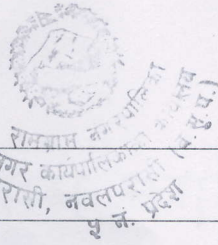 रामग्राम नगरपालिका
नगर कार्यपालिकाको कार्यालय
परासी, नवलपरासी (ब.सु.प.)
प्रदेश